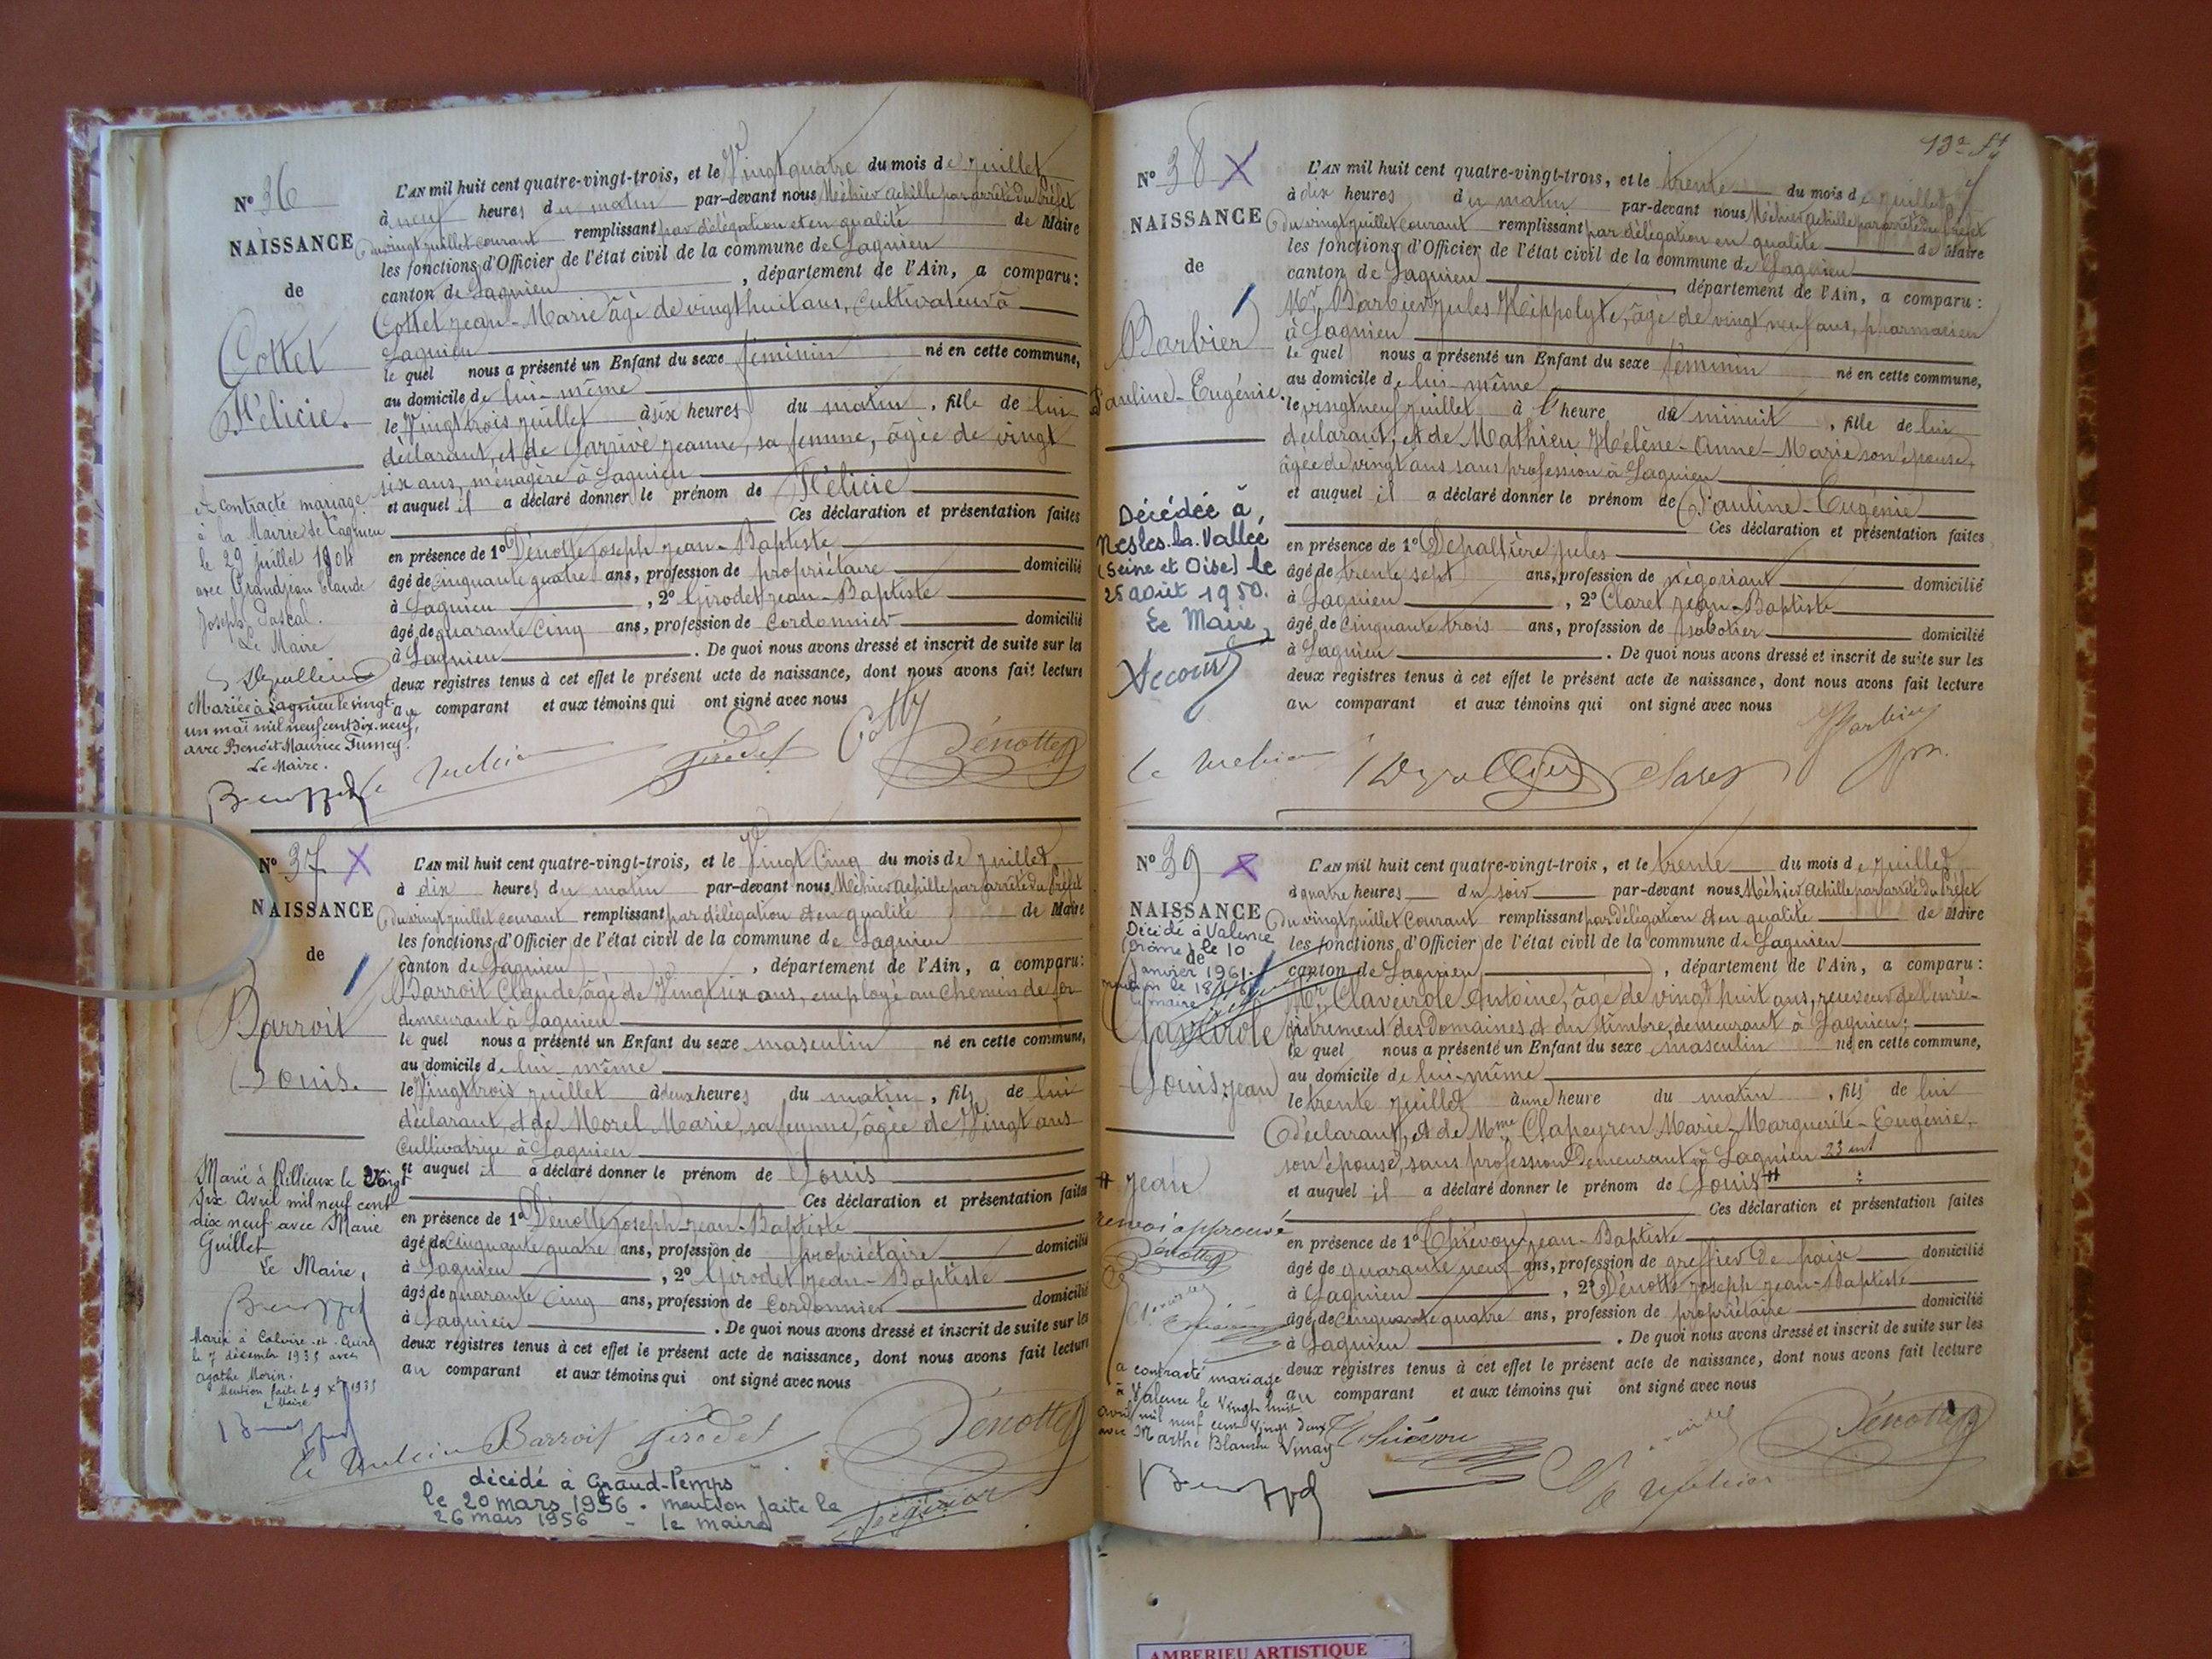 N° 36
NAISSANCE
de
Cottet
Félicie.
A contracté mariage
à la Mairie de Lagnieu
le 29 juillet 1904
avec Grandjean Claude
Joseph Pascal.
Le Maire
Mariée à Lagnieu le vingt-
un mai mil neuf cent dix-neuf,
avec Benoît Maurice Fumey.
Le Maire.
L'AN mil huit cent quatre-vingt-trois, et le Vingt quatre du mois de juillet
à neuf heures du matin par-devant nous Méhier Achille par arrêté du Préfet
du vingt juillet courant remplissant par délégation et en qualité de Maire
les fonctions d'Officier de l'état civil de la commune de Lagnieu
canton de Lagnieu, département de l'Ain, a comparu:
Cottet Jean-Marie âgé de vingt huit ans, Cultivateur à
Lagnieu
le quel nous a présenté un Enfant du sexe féminin né en cette commune,
au domicile de lui-même
le Vingt trois juillet à six heures du matin, fille de lui
déclarant, et de Jeanne, sa femme, âgée de vingt
six ans, ménagère à Lagnieu
et auquel il a déclaré donner le prénom de Félicie
Ces déclaration et présentation faites
en présence de 1° Dénotte Joseph Jean-Baptiste
âgé de Cinquante quatre ans, profession de propriétaire domicilié
à Lagnieu, 2° Girodet Jean-Baptiste
âgé de quarante Cinq ans, profession de Cordonnier domicilié
à Lagnieu. De quoi nous avons dressé et inscrit de suite sur les
deux registres tenus à cet effet le présent acte de naissance, dont nous avons fait lecture
au comparant et aux témoins qui ont signé avec nous
Girodet Dénotte
N° 37 X
NAISSANCE
de
Barroit
Louis.
Marié à Rillieux le Vingt
six Avril mil neuf cent
dix neuf avec Marie
Guillet
Le Maire,
Marié à Caluire-et-Cuire
le 7 décembre 1935 avec
Agathe Morin.
Mention faite le 9 Xbre 1935
le Maire
L'AN mil huit cent quatre-vingt-trois, et le Vingt Cinq du mois de juillet
à dix heures du matin par-devant nous Méhier Achille par arrêté du Préfet
du vingt juillet courant remplissant par délégation et en qualité de Maire
les fonctions d'Officier de l'état civil de la commune de Lagnieu
canton de Lagnieu, département de l'Ain, a comparu:
Barroit Claude, âgé de Vingt six ans, employé au Chemin de fer
demeurant à Lagnieu
le quel nous a présenté un Enfant du sexe masculin né en cette commune,
au domicile de lui-même
le Vingt trois juillet à deux heures du matin, fils de lui
déclarant, et de Morel Marie, sa femme, âgée de Vingt ans
Cultivatrice à Lagnieu
et auquel il a déclaré donner le prénom de Louis
Ces déclaration et présentation faites
en présence de 1° Dénotte Joseph Jean-Baptiste
âgé de Cinquante quatre ans, profession de propriétaire domicilié
à Lagnieu, 2° Girodet Jean-Baptiste
âgé de quarante Cinq ans, profession de Cordonnier domicilié
à Lagnieu. De quoi nous avons dressé et inscrit de suite sur les
deux registres tenus à cet effet le présent acte de naissance, dont nous avons fait lecture
au comparant et aux témoins qui ont signé avec nous
Barroit Girodet Dénotte
décédé à Grand-Temps
le 20 mars 1956. mention faite le
26 mars 1956 - le maire
13e ft
N° 38 X
NAISSANCE
de
Barbier
Pauline-Eugénie.
Décédée à
Nesles-la-Vallée
(Seine et Oise) le
25 août 1950.
Le Maire,
L'AN mil huit cent quatre-vingt-trois, et le trente du mois de juillet
à dix heures du matin par-devant nous Méhier Achille par arrêté du Préfet
du vingt juillet courant remplissant par délégation en qualité de Maire
les fonctions d'Officier de l'état civil de la commune de Lagnieu
canton de Lagnieu, département de l'Ain, a comparu:
Mr Barbier Jules Hippolyte, âgé de vingt neuf ans, pharmacien
à Lagnieu
le quel nous a présenté un Enfant du sexe féminin né en cette commune,
au domicile de lui-même
le vingt neuf juillet à l'heure de minuit, fille de lui
déclarant, et de Mathieu Hélène-Anne-Marie son épouse,
âgée de vingt ans sans profession à Lagnieu
et auquel il a déclaré donner le prénom de Pauline-Eugénie
Ces déclaration et présentation faites
en présence de 1° Depallière Jules
âgé de trente sept ans, profession de négociant domicilié
à Lagnieu, 2° Claret Jean-Baptiste
âgé de Cinquante trois ans, profession de sabotier domicilié
à Lagnieu. De quoi nous avons dressé et inscrit de suite sur les
deux registres tenus à cet effet le présent acte de naissance, dont nous avons fait lecture
au comparant et aux témoins qui ont signé avec nous
Barbier
Claret
N° 39 X
NAISSANCE
de
Décédé à Valence
(Drôme) le 10
janvier 1961.
le maire
Claveirole
Louis-Jean
# Jean
renvoi approuvé
Dénotte
a contracté mariage
à Valence le vingt huit
avril mil neuf cent vingt deux
avec Marthe Blanche Vinay
L'AN mil huit cent quatre-vingt-trois, et le trente du mois de juillet
à quatre heures du soir par-devant nous Méhier Achille par arrêté du Préfet
du vingt juillet Courant remplissant par délégation et en qualité de Maire
les fonctions d'Officier de l'état civil de la commune de Lagnieu
canton de Lagnieu, département de l'Ain, a comparu:
Mr Claveirole Antoine, âgé de vingt huit ans, receveur de l'enre-
gistrement des Domaines et du timbre, demeurant à Lagnieu;
le quel nous a présenté un Enfant du sexe masculin né en cette commune,
au domicile de lui-même
le trente juillet à une heure du matin, fils de lui
déclarant, et de Mme Chapeyron Marie-Marguerite-Eugénie,
son épouse, sans profession Demeurant à Lagnieu 23 ans
et auquel il a déclaré donner le prénom de Louis #
Ces déclaration et présentation faites
en présence de 1° Thiévon Jean-Baptiste
âgé de quarante neuf ans, profession de greffier de paix domicilié
à Lagnieu, 2° Dénotte Joseph Jean-Baptiste
âgé de Cinquante quatre ans, profession de propriétaire domicilié
à Lagnieu. De quoi nous avons dressé et inscrit de suite sur les
deux registres tenus à cet effet le présent acte de naissance, dont nous avons fait lecture
au comparant et aux témoins qui ont signé avec nous
Thiévon Dénotte
AMBERIEU ARTISTIQUE